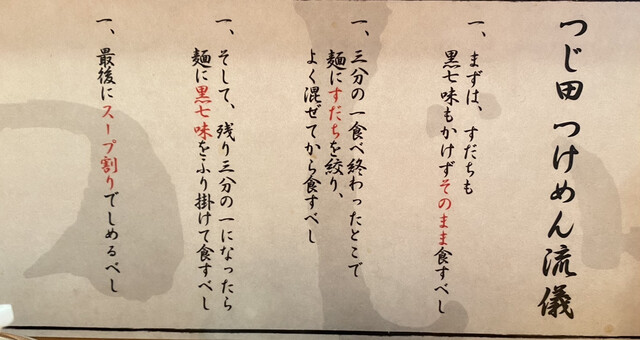 つじ田 つけめん流儀
一、まずは、すだちも
黒七味もかけずそのまま食すべし
一、三分の一食べ終わったとこで
麺にすだちを絞り、
よく混ぜてから食すべし
一、そして、残り三分の一になったら
麺に黒七味をふり掛けて食すべし
一、最後にスープ割りでしめるべし